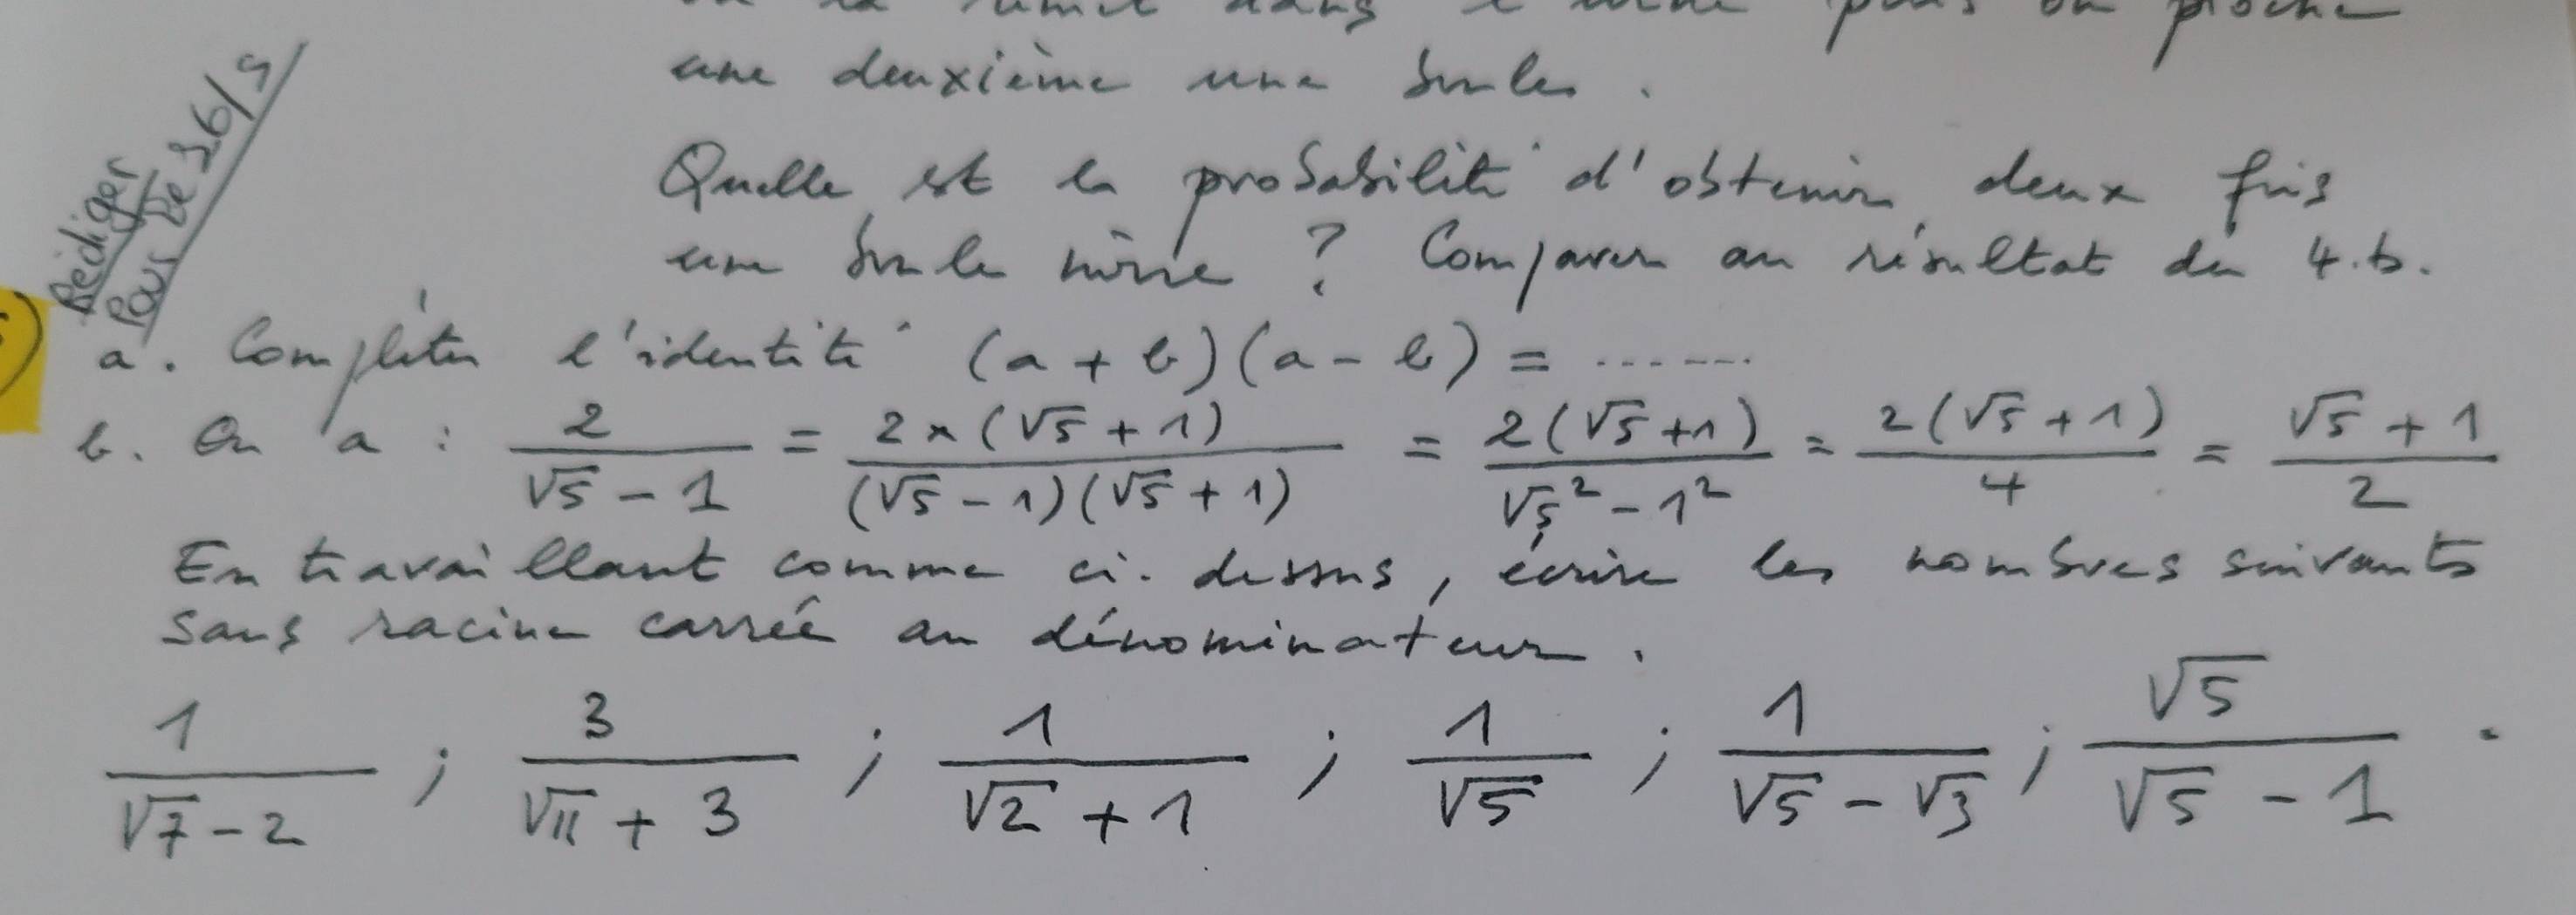 dans l'urne puis on pioche
une deuxième une boules.
Quelle est la probabilité d'obtenir deux fois
une boule noire ? Comparer au résultat du 4.b.
Rédiger
Pour le 26/9
a. Compléter l'identité (a + b)(a - b) = .......
b. On a : 2/(√5 - 1) = 2×(√5 + 1)/((√5 - 1)(√5 + 1)) = 2(√5 + 1)/(√5² - 1²) = 2(√5 + 1)/4 = (√5 + 1)/2
En travaillant comme ci-dessus, écrire les nombres suivants
sans racine carrée au dénominateur.
1/(√7 - 2) ; 3/(√11 + 3) ; 1/(√2 + 1) ; 1/√5 ; 1/(√5 - √3) ; √5/(√5 - 1) .